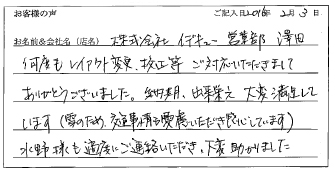 お客様の声 ご記入日2016年 2月 3日
お名前&会社名(店名) 株式会社 イデキュー 営業部 澤田
何度も レイアウト変更、校正等 ご対応いただきまして
ありがとうございました。納期、出来栄え 大変満足して
います(雪のため、交通事情も憂慮いただき感謝しています)
水野様も 適度にご連絡いただき、大変助かりました